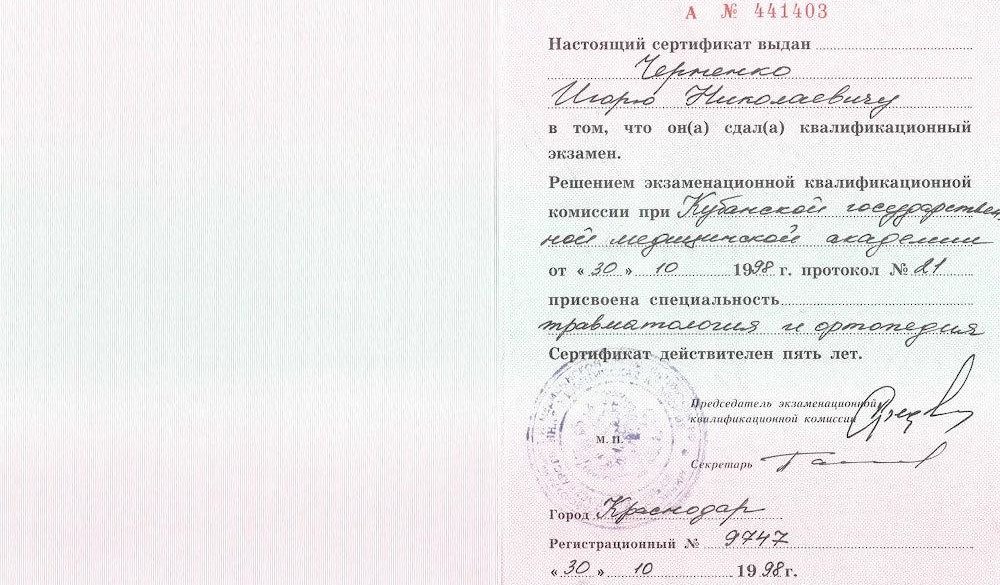 А № 441403
Настоящий сертификат выдан
Черненко
Игорю Николаевичу
в том, что он(а) сдал(а) квалификационный
экзамен.
Решением экзаменационной квалификационной
комиссии при Кубанской государствен
ной медицинской академии
от « 30 » 10 1998 г. протокол № 21
присвоена специальность
травматология и ортопедия
Сертификат действителен пять лет.
Председатель экзаменационной
квалификационной комиссии
М. П.
Секретарь
Город Краснодар
Регистрационный № 9747
« 30 » 10 1998 г.